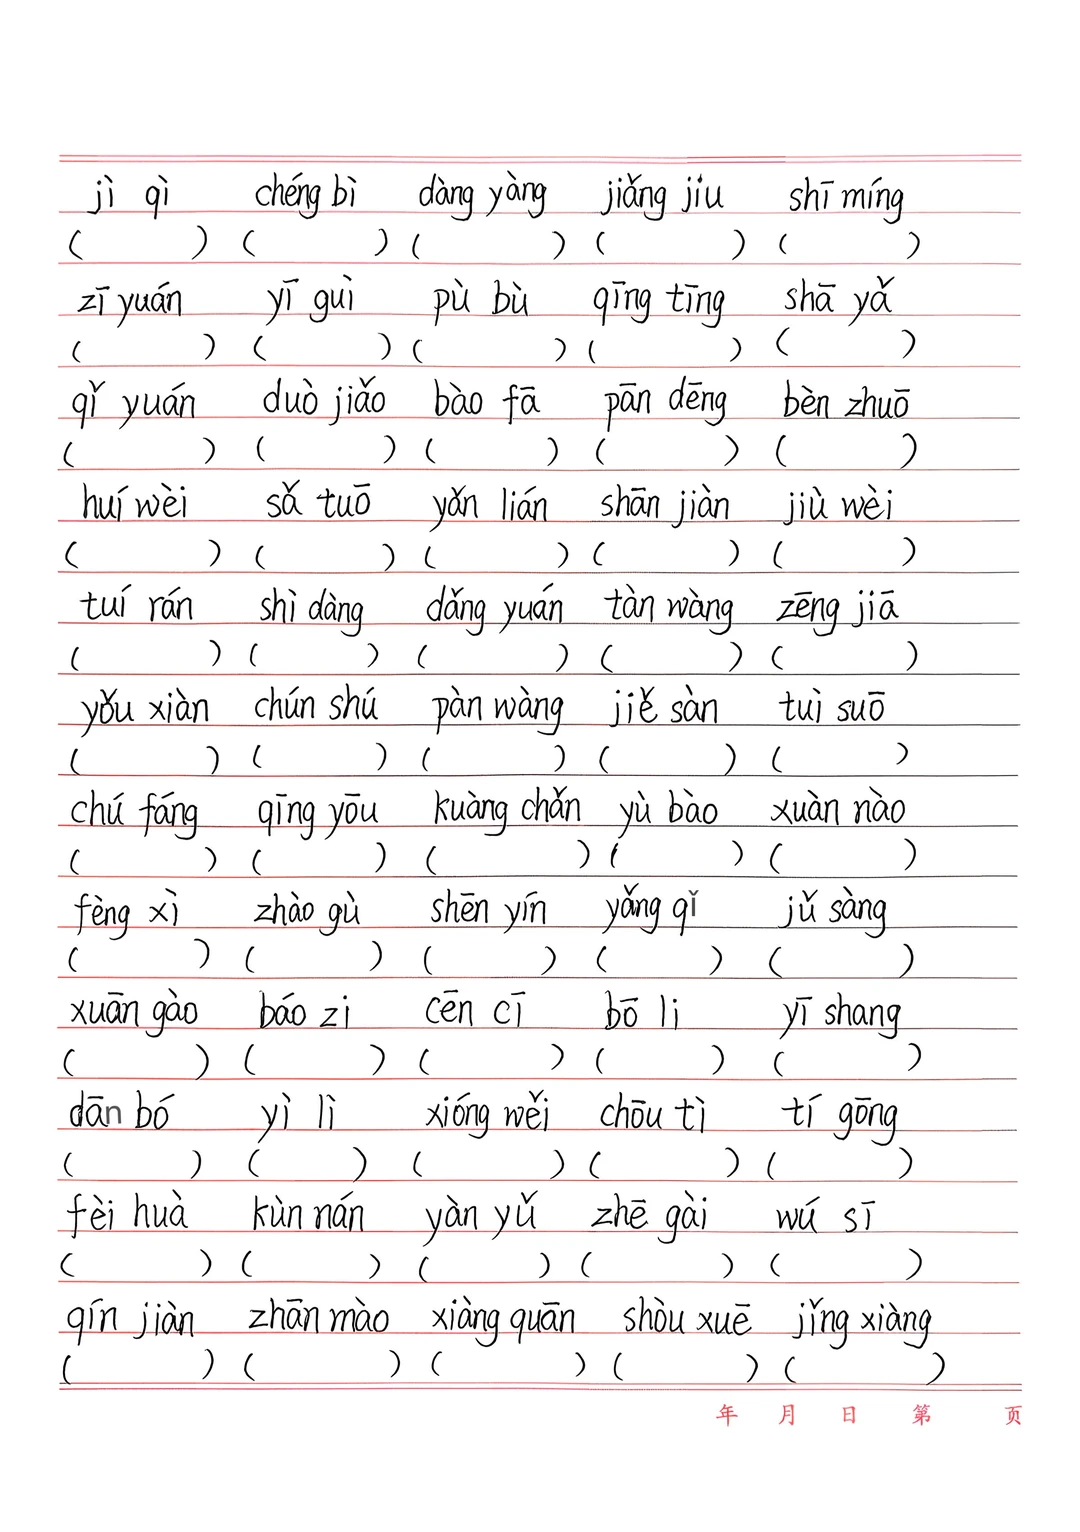 jì qì chéng bì dàng yàng jiǎng jiu shī míng
( ) ( ) ( ) ( ) ( )
zī yuán yī guì pù bù qīng tīng shā yǎ
( ) ( ) ( ) ( ) ( )
qǐ yuán duò jiǎo bào fā pān dēng bèn zhuō
( ) ( ) ( ) ( ) ( )
huí wèi sǎ tuō yǎn lián shān jiàn jiù wèi
( ) ( ) ( ) ( ) ( )
tuí rán shì dàng dǎng yuán tàn wàng zēng jiā
( ) ( ) ( ) ( ) ( )
yǒu xiàn chún shú pàn wàng jiě sàn tuì suō
( ) ( ) ( ) ( ) ( )
chú fáng qīng yōu kuàng chǎn yù bào xuàn nào
( ) ( ) ( ) ( ) ( )
fèng xì zhào gù shēn yín yǎng qǐ jǔ sàng
( ) ( ) ( ) ( ) ( )
xuān gào báo zi cēn cī bō li yī shang
( ) ( ) ( ) ( ) ( )
dān bó yì lì xióng wěi chōu tì tí gōng
( ) ( ) ( ) ( ) ( )
fèi huà kùn nán yàn yǔ zhē gài wú sī
( ) ( ) ( ) ( ) ( )
qín jiàn zhān mào xiàng quān shòu xuē jǐng xiàng
( ) ( ) ( ) ( ) ( )
年 月 日 第 页